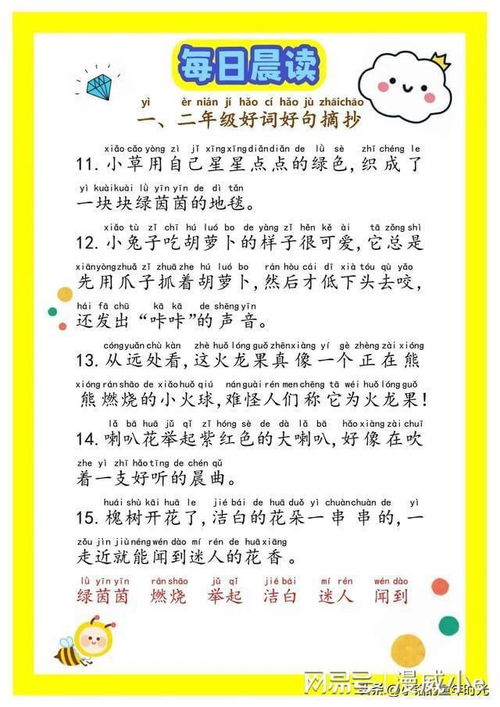 每日晨读
yì èr nián jí hǎo cí hǎo jù zhāichāo
一、二年级好词好句摘抄
xiǎo cǎo yòng zì jǐ xīng xīng diǎn diǎn de lǜ sè zhī chéng le
11. 小草用自己星星点点的绿色,织成了
yí kuàikuài lǜ yīn yīn de dì tǎn
一块块绿茵茵的地毯。
xiǎo tù zǐ chī hú luó bo de yàng zǐ hěn kě ài tā zǒng shì
12. 小兔子吃胡萝卜的样子很可爱,它总是
xiānyòngzhuǎ zǐ zhuā zhe hú luó bo rán hòu cái dī xià tóu qù yǎo
先用爪子抓着胡萝卜,然后才低下头去咬,
hái fā chū kā kā de shēngyīn
还发出“咔咔”的声音。
cóngyuǎn chù kàn zhè huǒ lóng guǒ zhēnxiàng yí gè zhèng zài xióng
13. 从远处看,这火龙果真像一个正在熊
xióng rán shāo de xiǎo huǒ qiú nánguài rén men chēng tā wéi huǒ lóng guǒ
熊燃烧的小火球,难怪人们称它为火龙果!
lǎ bā huā jǔ qǐ zǐ hóng sè de dà lǎ bā hǎo xiàng zài chuī
14. 喇叭花举起紫红色的大喇叭,好像在吹
zhe yì zhī hǎo tīng de chén qǔ
着一支好听的晨曲。
huái shù kāi huā le jié bái de huā duǒ yí chuàn chuàn de yì
15. 槐树开花了,洁白的花朵一串串的,一
zǒu jìn jiù néng wén dào mí rén de huā xiāng
走近就能闻到迷人的花香。
lǜ yīn yīn rán shāo jǔ qǐ jié bái mí rén wén dào
绿茵茵 燃烧 举起 洁白 迷人 闻到
网易号/漫威小e